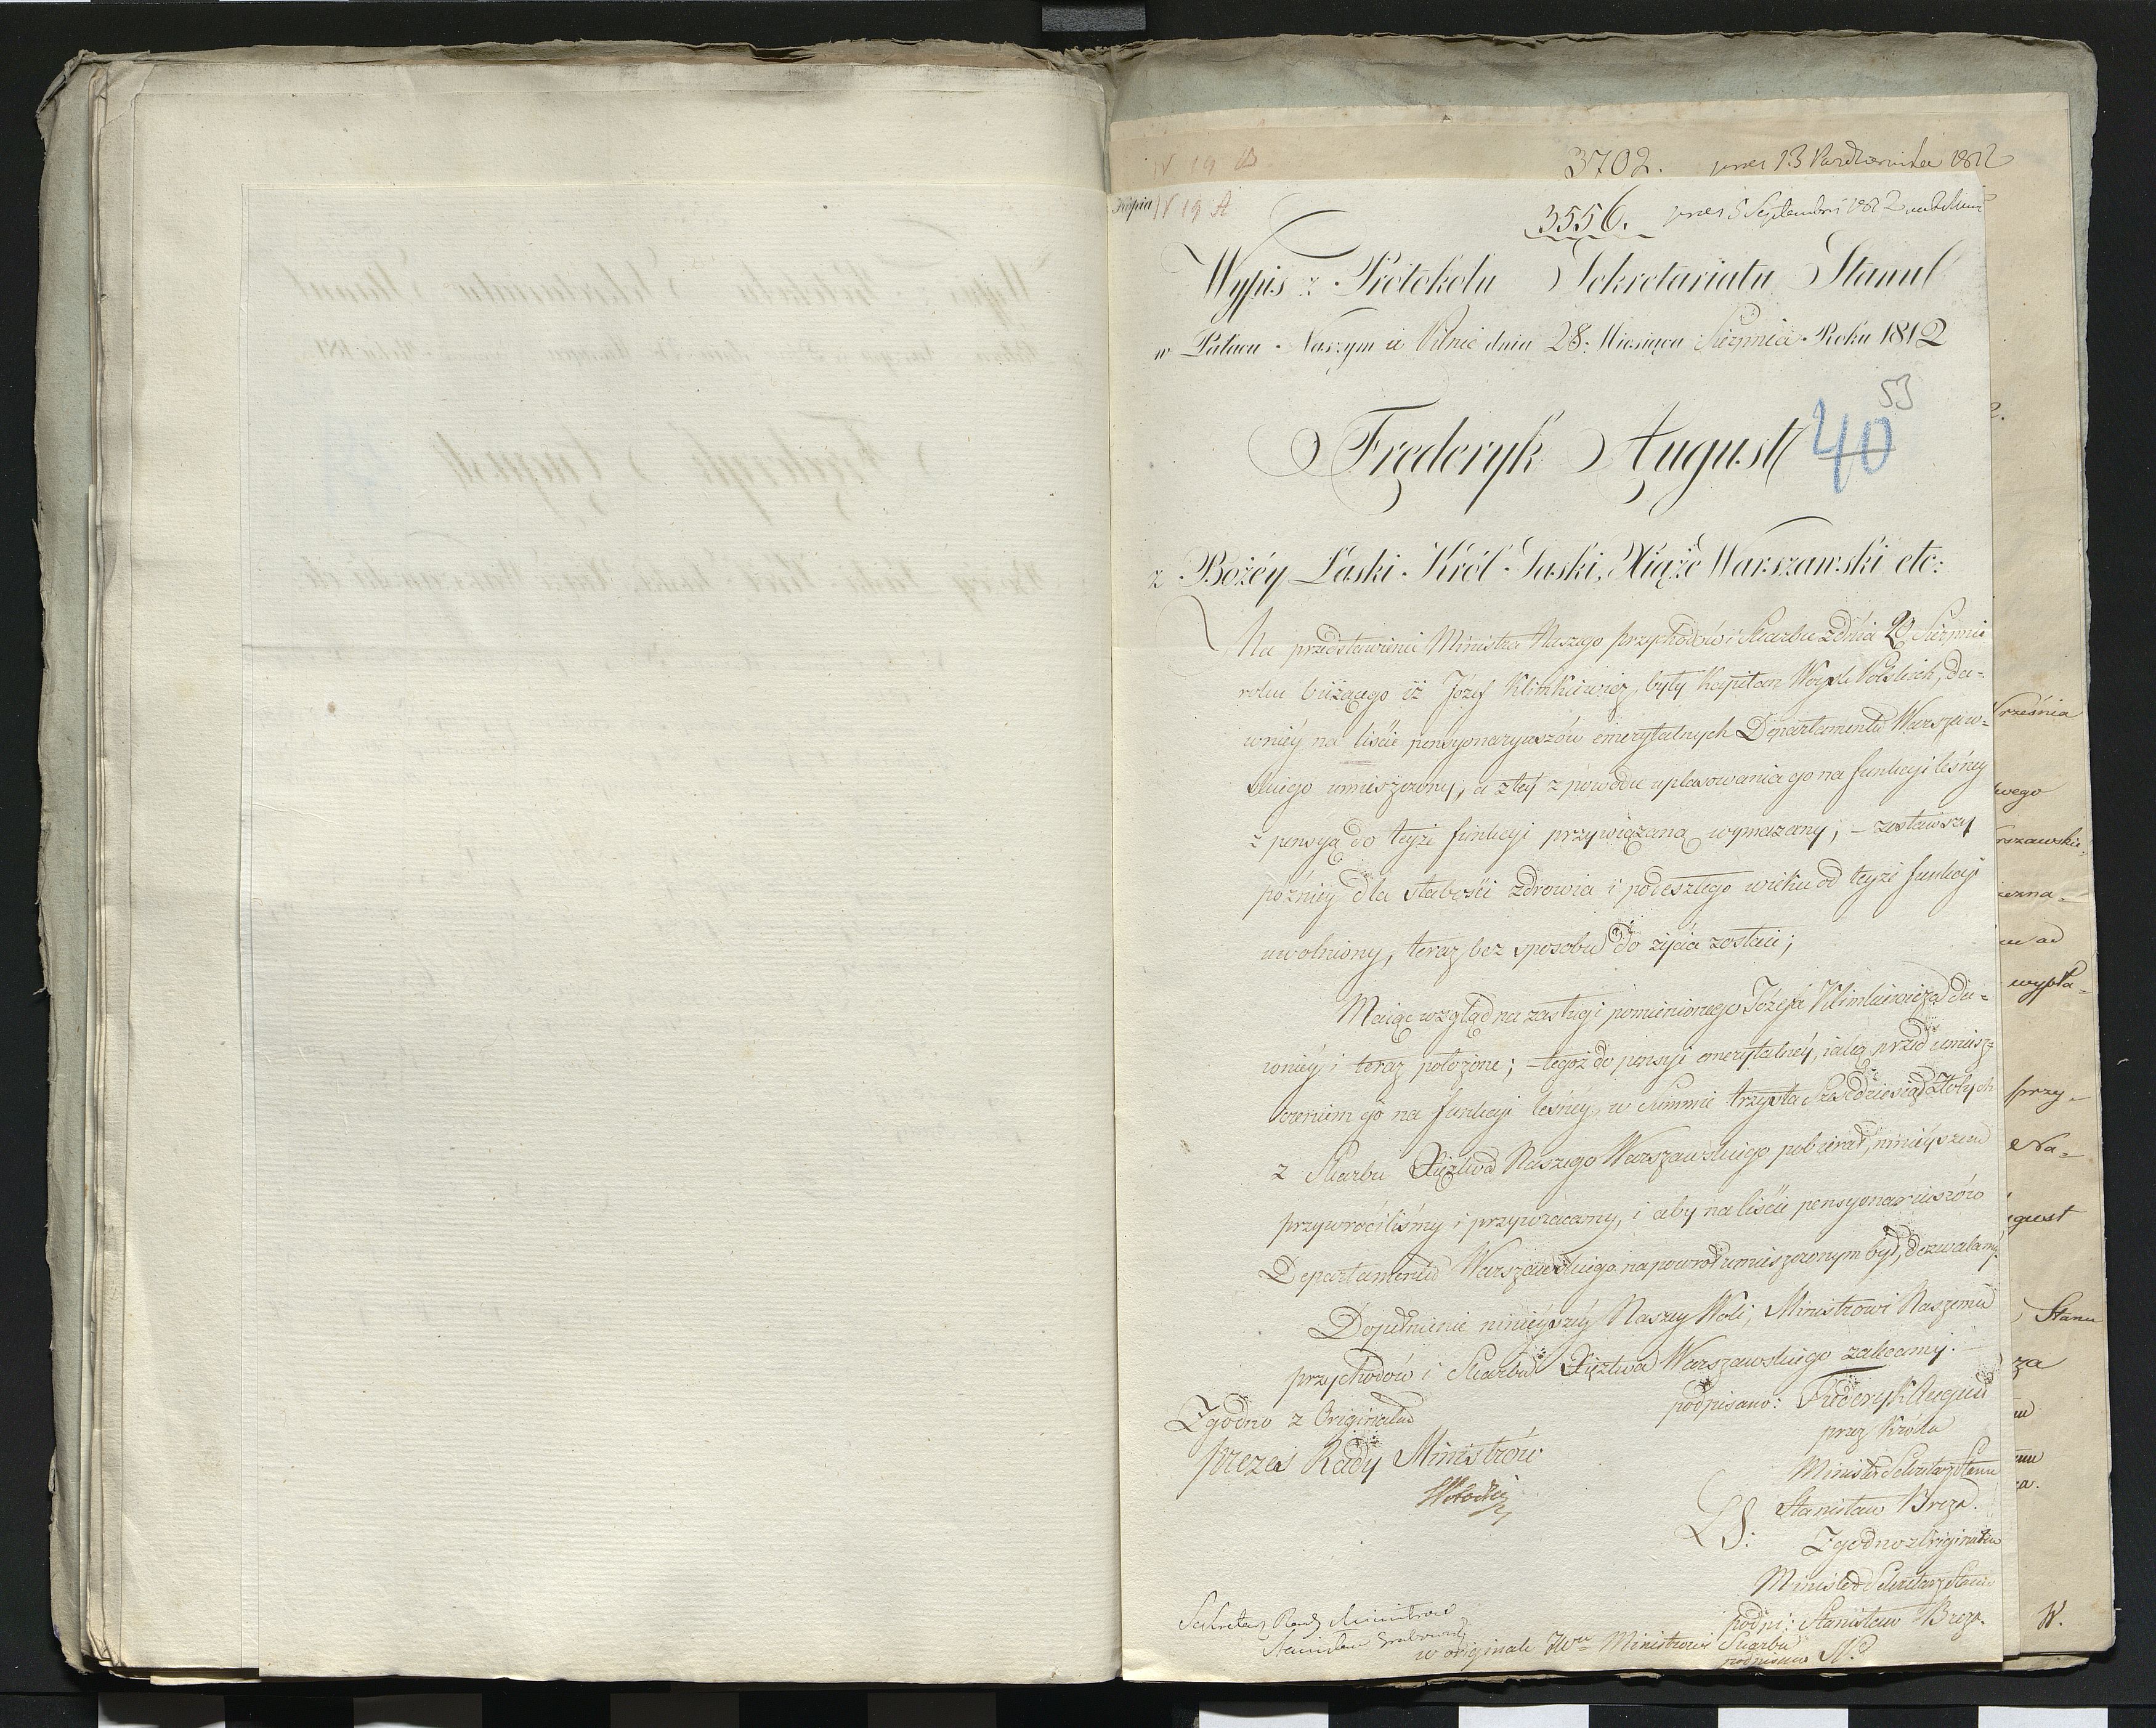 N 19 B
3702. prs: 13 Października 1812
Kopia N 19 A
3556. prs: 5 Septembris 1812
Wypis z Protokołu Sekretariatu Stanu
w Pałacu Naszym w Pilnic dnia 28: Miesiąca Sierpnia Roku 1812
53
40
Fryderyk August
z Bożéy Łaski Król Saski, Xiąże Warszawski etc:
Na przedstawienie Ministra Naszego przychodów i Skarbu z dnia 20 Sierpnia
roku bieżącego iż Józef Klimkiewicz, były Kapitan Woysk Polskich, da-
wniéy na liście pensyonaryuszów emerytalnych Departamentu Warszaw-
skiego umieszczony, a z téy z powodu uplasowania go na funkcyi leśnéy
z pensyą do teyże funkcyi przywiązaną wymazany; – zostawszy
późniéy dla słabości zdrowia i podeszłego wieku od teyże funkcyi
uwolniony, teraz bez sposobu do życia zostaie;
Maiąc wzgląd na zasługi pomienionego Józefa Klimkiewicza da-
wniéy i teraz położone; – tegoż do pensyi emerytalnéy, iaką przed umiesz-
czeniem go na funkcyi leśnéy w Summie trzysta Sześćdziesiąt Złotych
z Skarbu Xięztwa Naszego Warszawskiego pobierał, ninieyszem
przywróciliśmy i przywracamy, i aby na liście pensyonariuszów
Departamentu Warszawskiego napowrót umieszczonym był, dozwalamy.
Dopełnienie ninieyszéy Naszéy Woli, Ministrowi Naszemu
przychodów i Skarbu Xięztwa Warszawskiego zalecamy. –
podpisano: Fryderyk August
przez Króla
Minister Sekretarz Stanu
LS: Stanisław Breza.
Zgodno z Originałem
Minister Sekretarz Stanu
podpi: Stanisław Breza.
Zgodno z Originałem
Prezes Rady Ministrów
Sekretarz Rady Ministrow
Stanisław Grabowski
w originale JWu Ministrowi Skarbu
podpisano
Września
wego
rszawskie
wypła-
przy-
Na-
gust
Stanu
za
W.